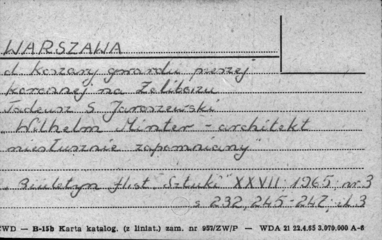 WARSZAWA
d. koszary gwardii pieszej
koronnej na Żoliborzu
Tadeusz S. Jaroszewski
"Wilhelm Minter – architekt
niesłusznie zapomniany"
"Biuletyn Hist. Sztuki" XXVII, 1965, nr 3
s 232, 245-247, il. 3
ZWD — B-15b Karta katalog. (z liniat.) zam. nr 957/ZW/P — WDA 21 22.4.65 3.979.000 A-6